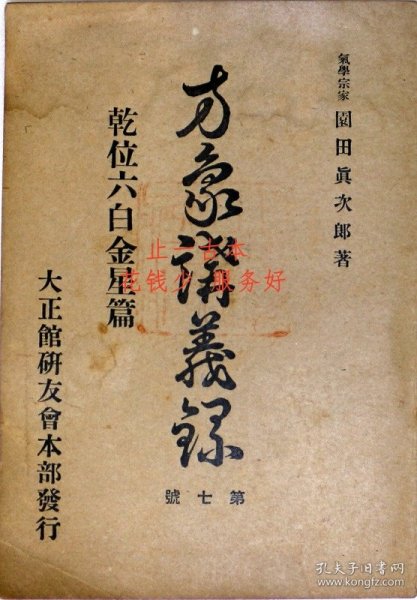 氣學宗家 園田眞次郎著
方象講義録
第七號
乾位六白金星篇
大正館研友會本部發行
止一古本
花钱少 服务好
孔夫子旧书网
www.kongfz.com